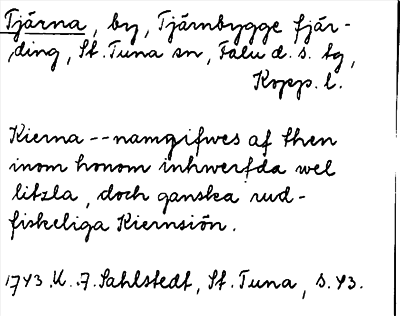 Tjärna, by, Tjärnbygge fjär-
ding, St. Tuna sn, Falu d. s. tg,
Kopp. l.
Kierna -- namgifwes af then
inom honom inhwerfda wel
litzla, doch ganska rud-
fiskeliga Kiernsiön.
1743. U. F. Sahlstedt, St. Tuna, s. 43.